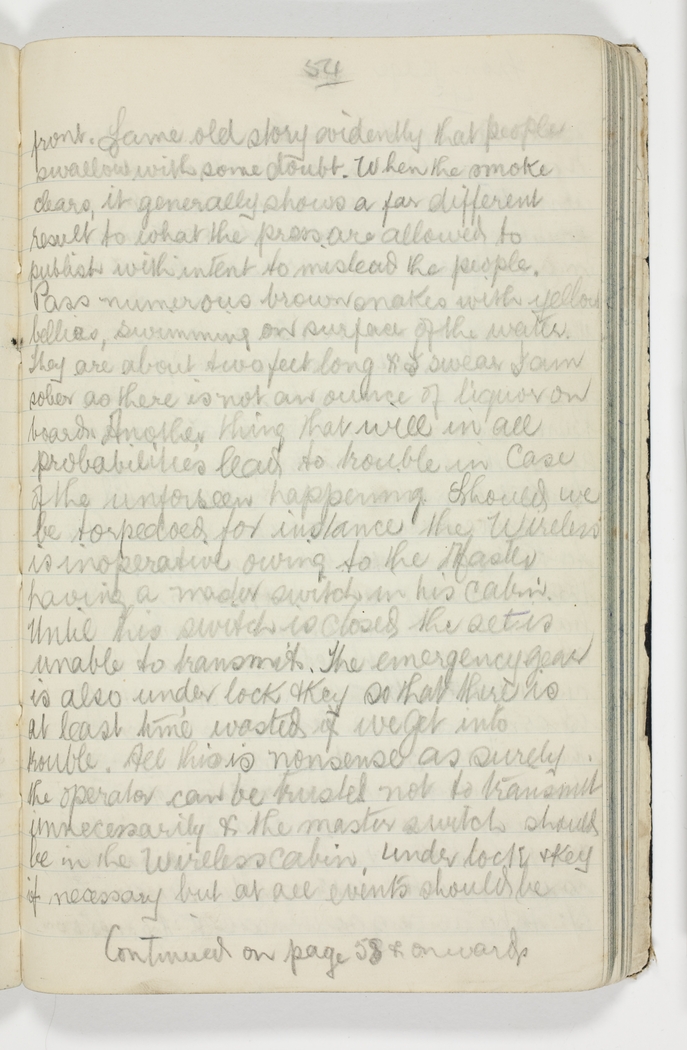 54
front. Same old story evidently that people
swallow with some doubt. When the smoke
clears, it generally shows a far different
result to what the press are allowed to
publish with intent to mislead the people.
Pass numerous brown snakes with yellow
bellies, swimming on surface of the water.
They are about two feet long & I swear I am
sober as there is not an ounce of liquor on
board. Another thing that will in all
probabilities lead to trouble in case
of the unforseen happening. Should we
be torpedoed for instance the Wireless
is inoperative owing to the Master
having a master switch in his cabin.
Until this switch is closed the set is
unable to transmit. The emergency gear
is also under lock & key so that there is
at least time wasted if we get into
trouble. All this is nonsense as surely
the operator can be trusted not to transmit
unnecessarily & the master switch should
be in the Wireless cabin, under lock & key
if necessary but at all events should be
Continued on page 58 & onwards